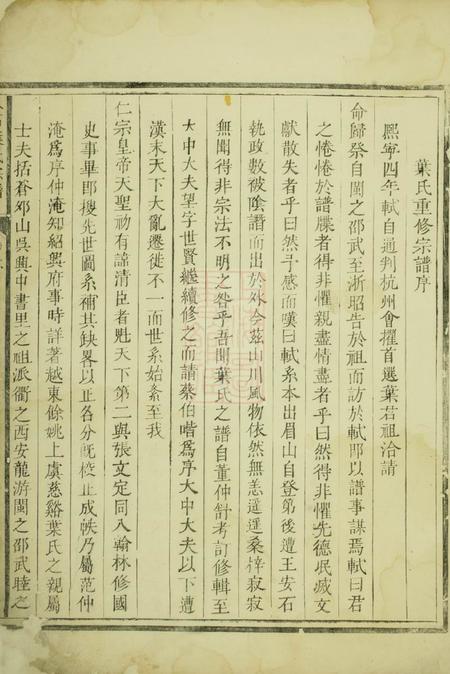 葉氏重修宗譜序
熙寧四年軾自通判杭州會擢首選葉君祖洽請
命歸祭自閩之邵武至浙昭告於祖而訪於軾即以譜事謀焉軾曰君
之惓惓於譜牒者得非懼親盡情盡者乎曰然得非懼先德泯滅文
獻散失者乎曰然予感而嘆曰軾系本出眉山自登第後遭王安石
執政數被陰譖而出於外今茲山川風物依然無恙遥遥桑梓寂寂
無聞得非宗法不明之咎乎吾聞葉氏之譜自董仲舒考訂修輯至
大中大夫望字世賢繼續修之而請蔡伯喈爲序大中大夫以下遭
漢末天下大亂遷徙不一而世系始紊至我
仁宗皇帝天聖初有諱清臣者魁天下第二與張文定同入翰林修國
史事畢即搜先世圖系補其缺畧以正各分既校正成帙乃屬范仲
淹爲序仲淹知紹興府事時詳著越東餘姚上虞慈谿葉氏之親屬
士夫括蒼卯山吳興中書里之祖派衢之西安龍游閩之邵武睦之